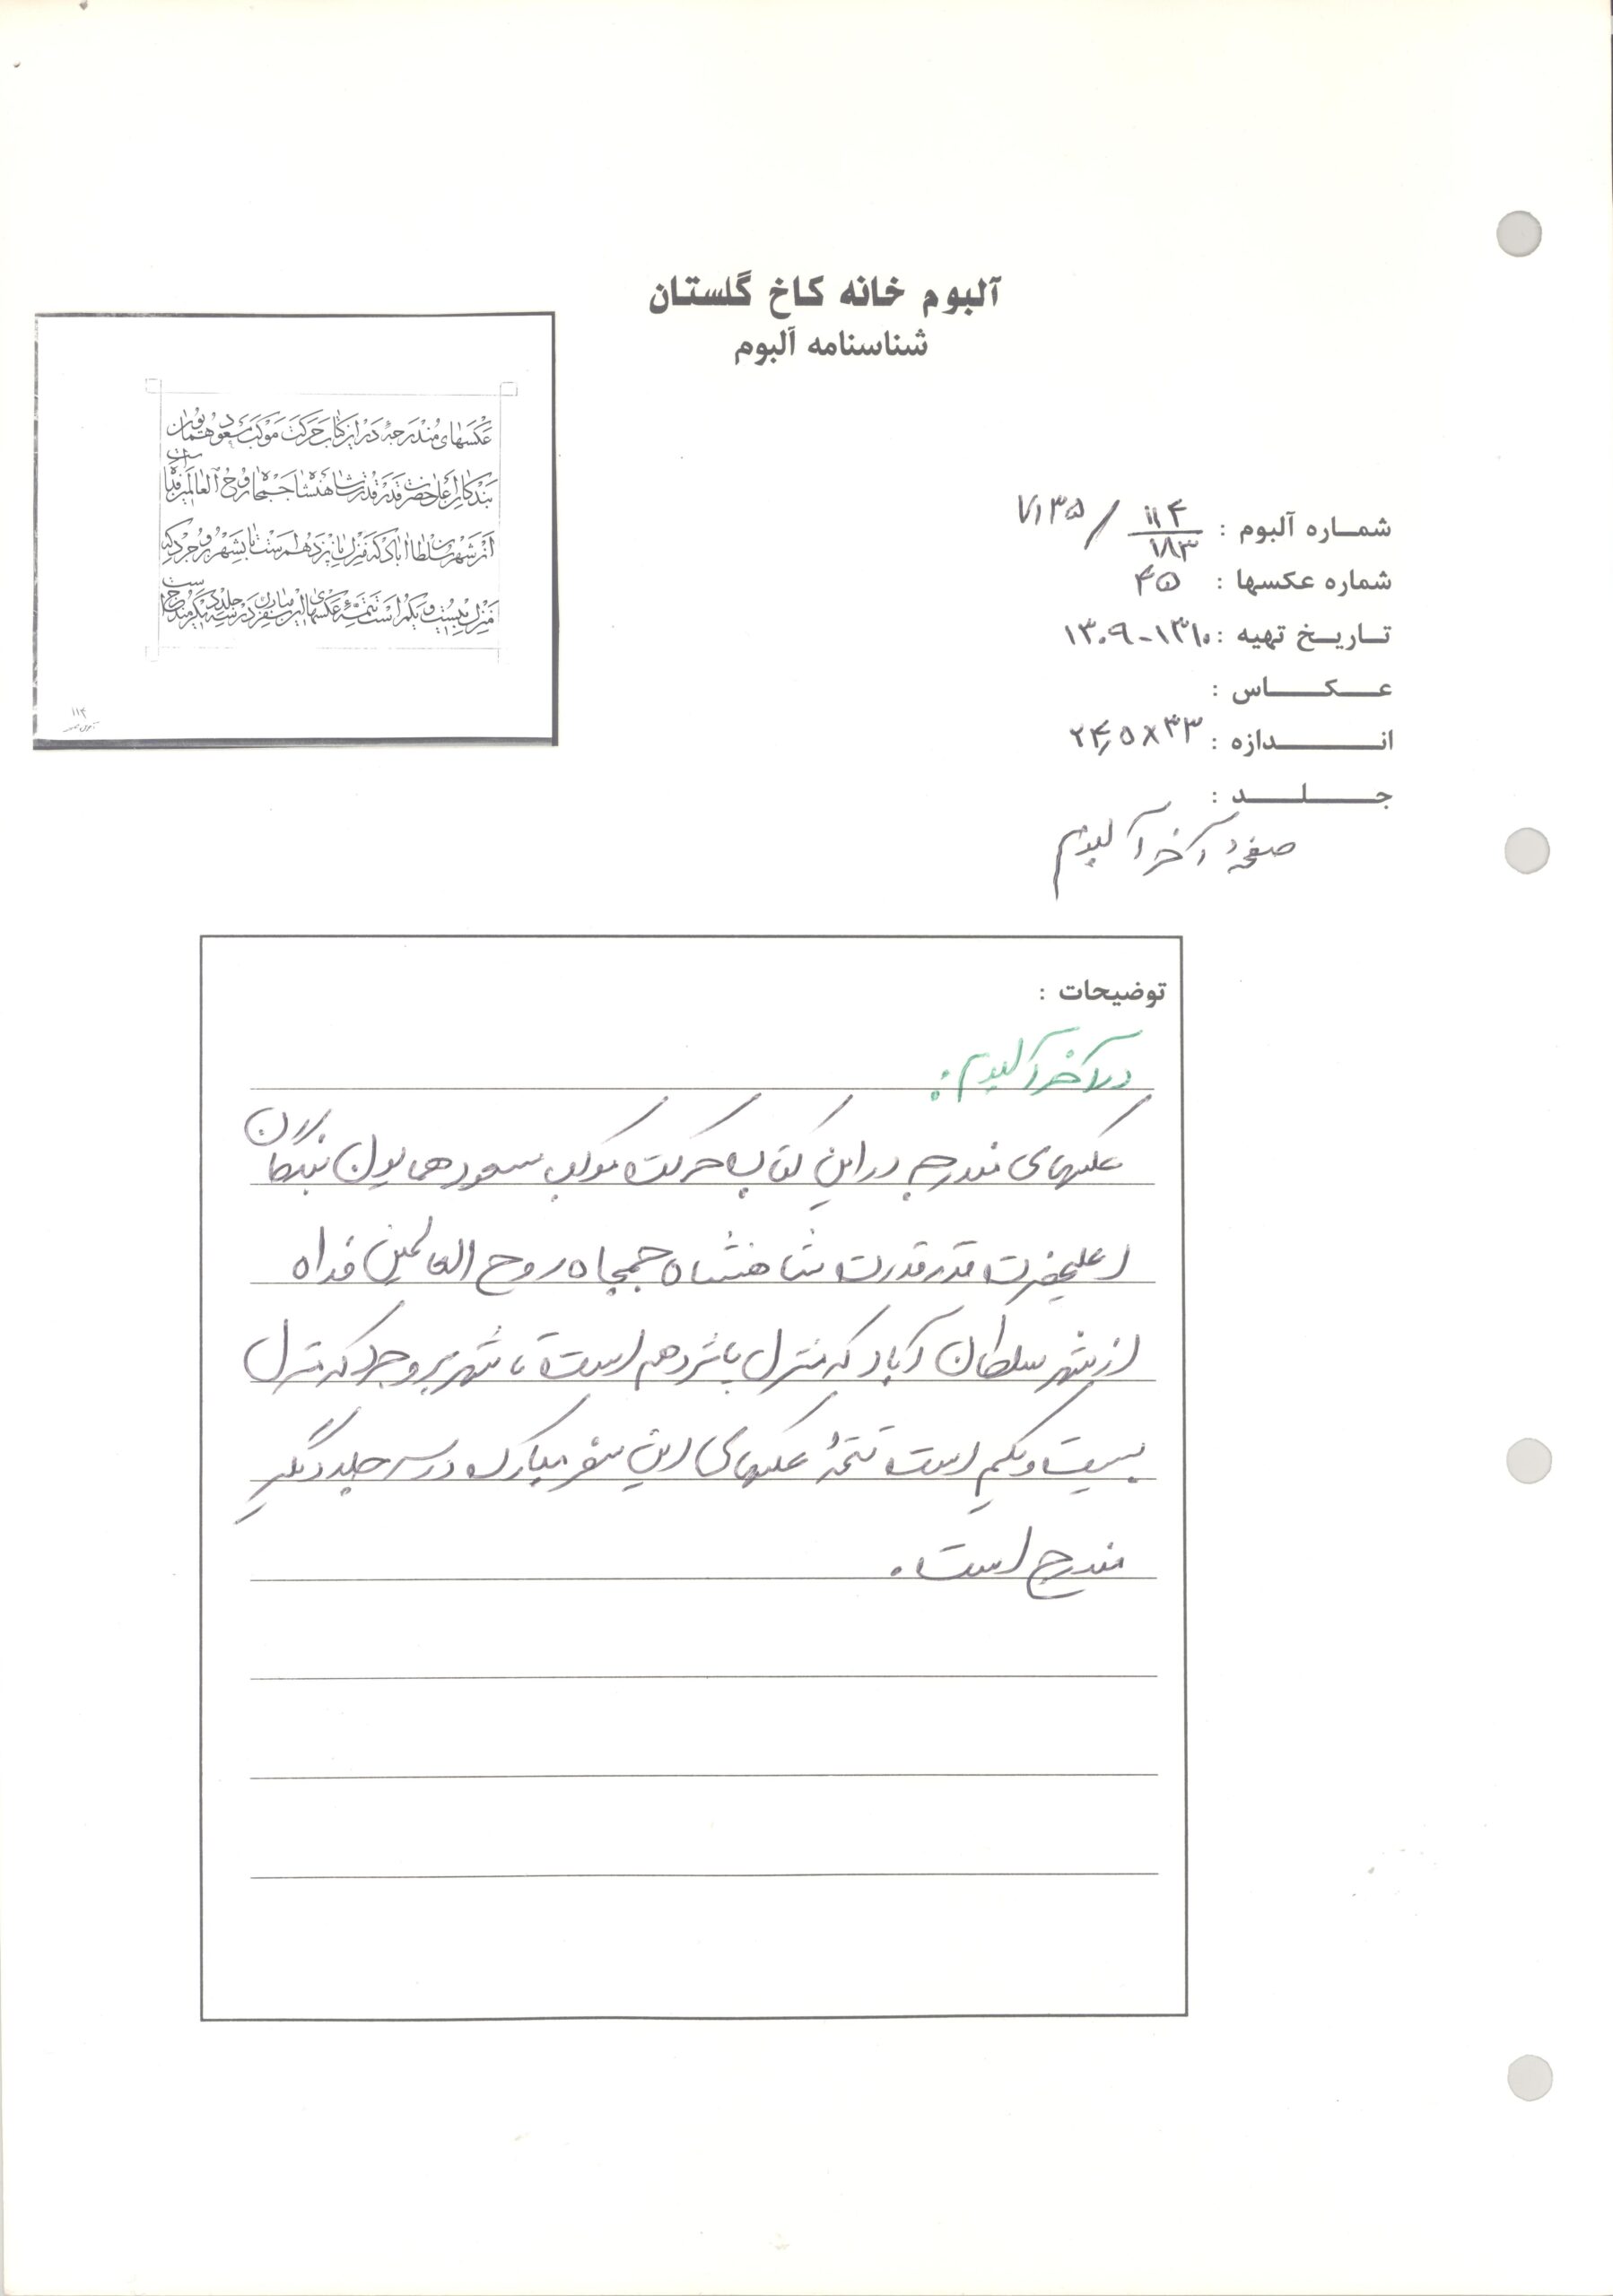 آلبوم خانه کاخ گلستان
شناسنامه آلبوم
عکسهای مندرجه در این کتاب حرکت موکب مسعود همایون
بندگان اعلیحضرت قدر قدرت شاهنشاه جمجاه روح العالمین فداه است
از شهر سلطان اباد که منزل پانزدهم است تا بشهر بروجرد که
منزل بیست و یکم است تتمهٔ عکسهای این سفر مبارک در سه جلد دیگر مندرج است
۱۱۴
شماره آلبوم : ۱۱۴/۱۸۳ / ۷۱۳۵
شماره عکسها : ۴۵
تاریخ تهیه : ۱۳۱۰-۱۳۰۹
عکاس :
اندازه : ۲۴٫۵×۳۳
جلد :
صفحهٔ آخر آلبوم
توضیحات :
در آخر آلبوم :
عکسهای مندرجه در این کتاب حرکت موکب مسعود همایون بندگان
اعلیحضرت قدر قدرت شاهنشاه جمجاه روح العالمین فداه
از شهر سلطان آباد که منزل پانزدهم است تا شهر بروجرد که منزل
بیست و یکم است تتمهٔ عکسهای این سفر مبارک در سه جلد دیگر
مندرج است .